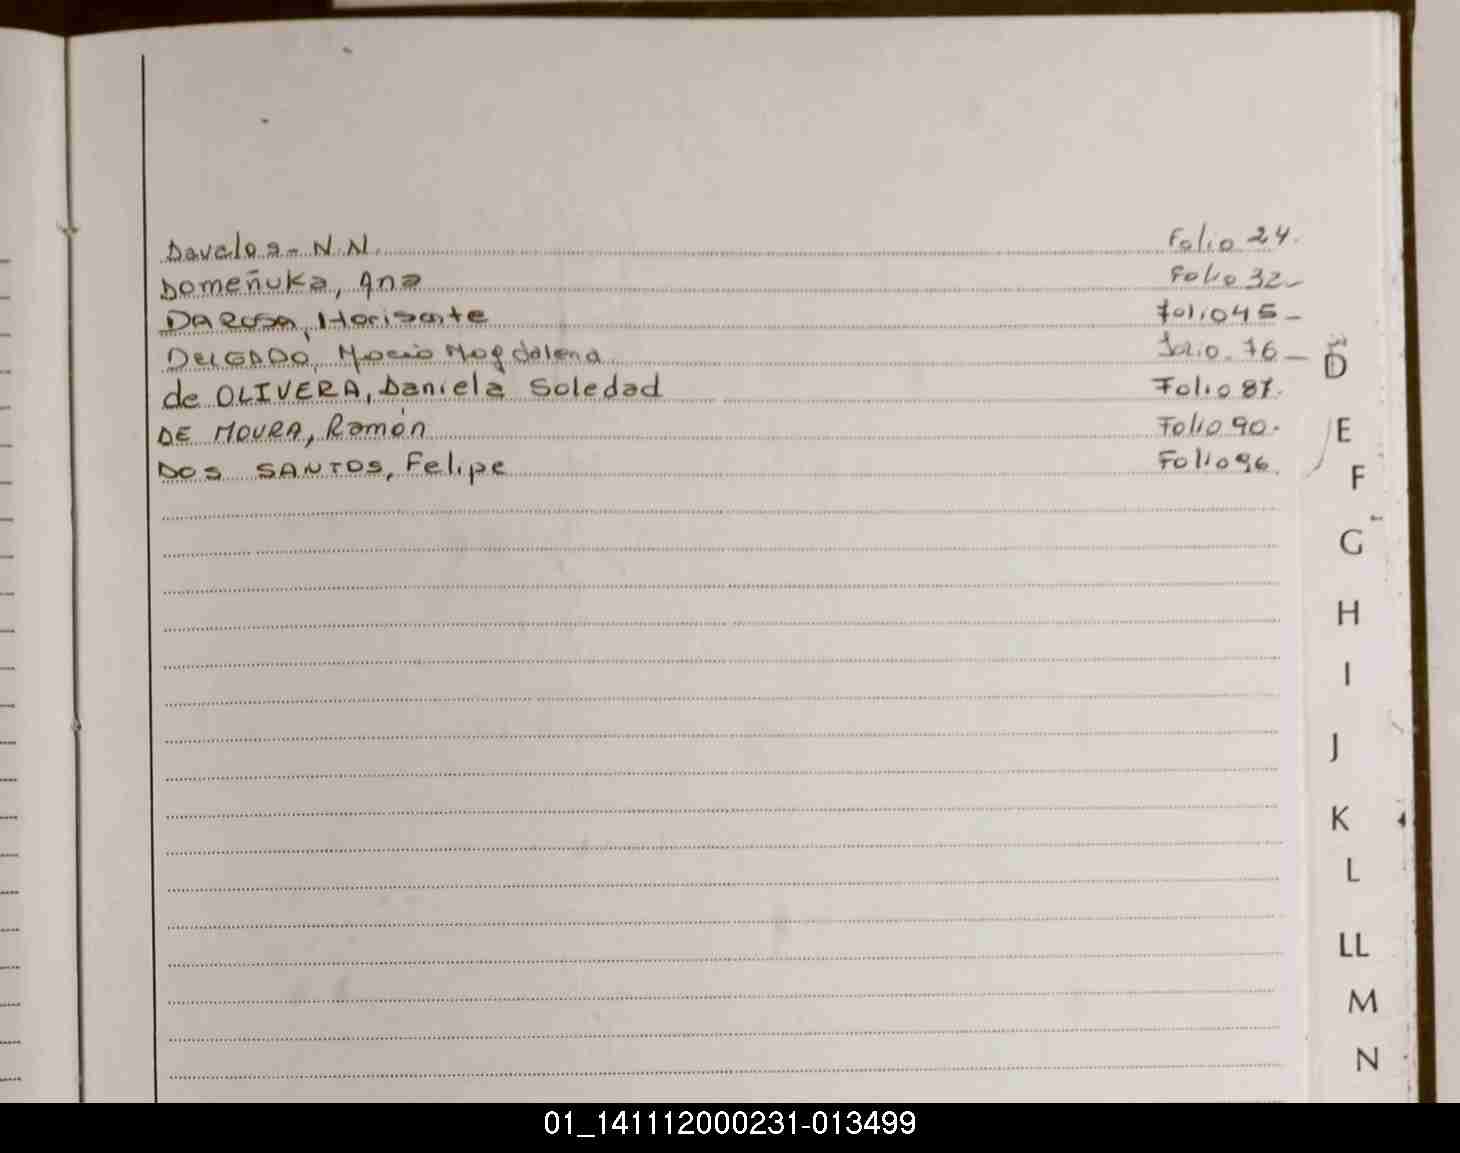 Davalos - N.N. Folio 24.
Domeñuka, Ana Folio 32-
DA ROSA, Horisonte Folio 45-
DELGADO, Magdalena Folio 76-
de OLIVERA, Daniela Soledad Folio 87.
DE MOURA, Ramón Folio 90.
DOS SANTOS, Felipe Folio 96.
D
E
F
G
H
I
J
K
L
LL
M
N
01_141112000231-013499